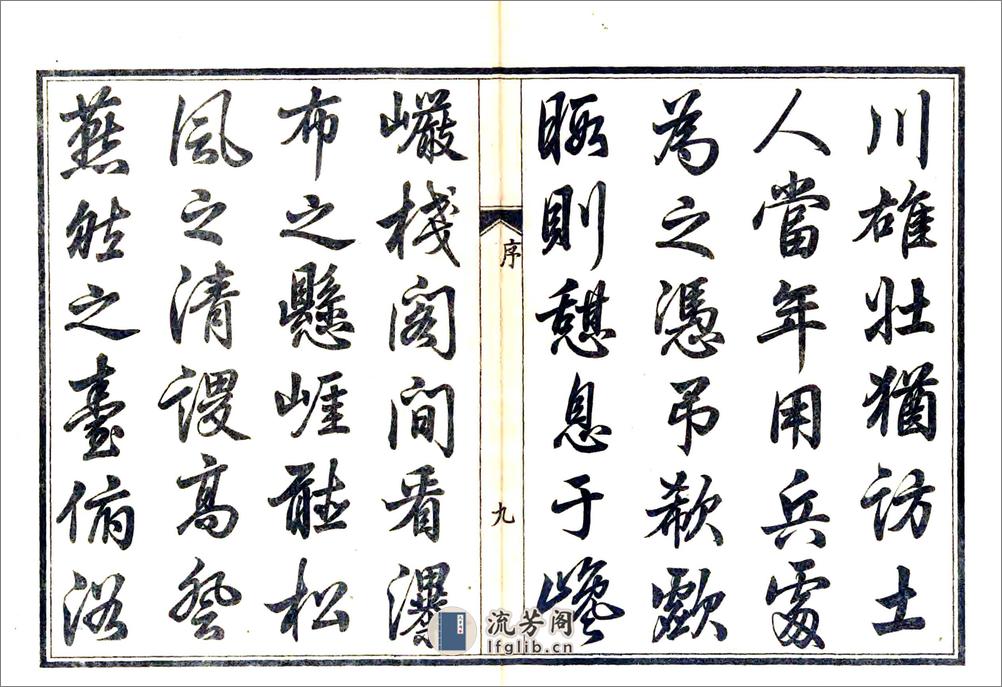 川雄壯猶訪土
人當年用兵處
為之憑吊欷歔
暇則憩息于巉
序
九
巖棧閣間看瀑
布之懸崖聽松
風之清謖高登
燕然之臺俯浴
流芳阁
lfglib.cn